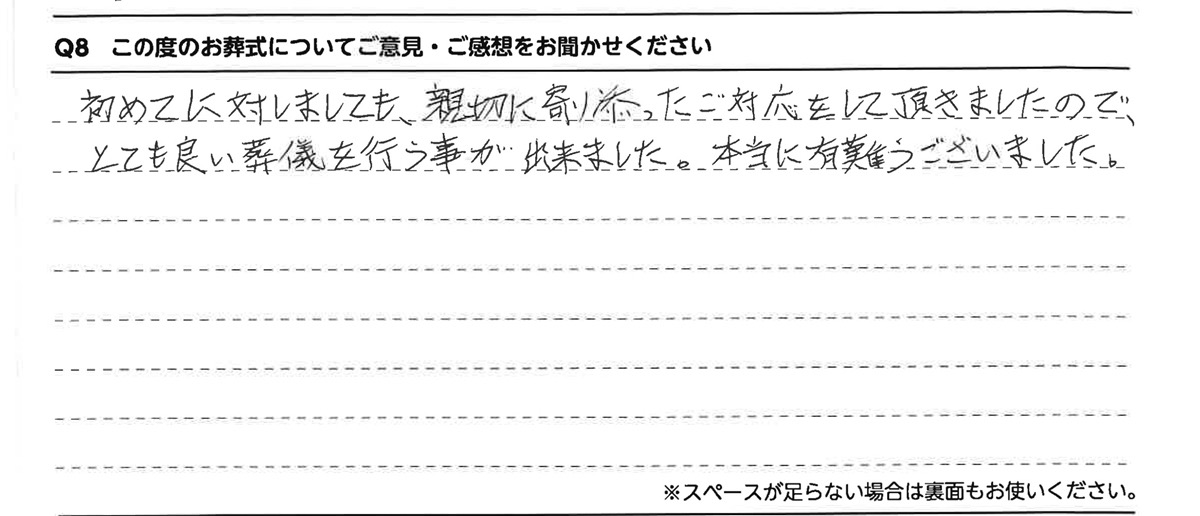 Q8 この度のお葬式についてご意見・ご感想をお聞かせください
初めてに対しましても、親切に寄り添ったご対応をして頂きましたので、
とても良い葬儀を行う事が出来ました。本当に有難うございました。
※スペースが足らない場合は裏面もお使いください。